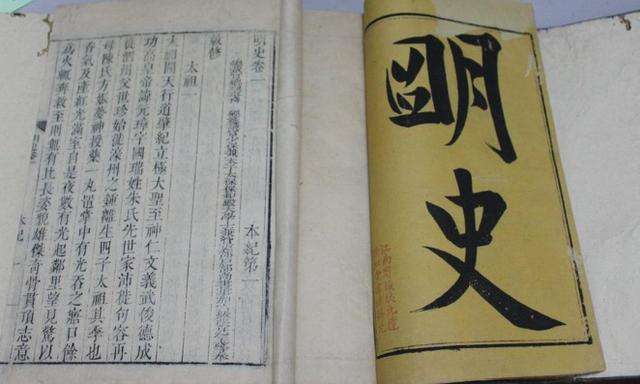 明史
明史卷一 本紀第一
敕修
太祖一
太祖開天行道肇紀立極大聖至神仁文義武俊德成
功高皇帝諱元璋字國瑞姓朱氏先世家沛徙句容再
徙泗州父世珍始徙濠州之鍾離生四子太祖其季也
母陳氏方娠夢神授藥一丸置掌中有光吞之寤口餘
香氣及產紅光滿室自是夜數有光起鄰里望見驚以
為火輒奔救至則無有比長姿貌雄傑奇骨貫頂志意
本紀